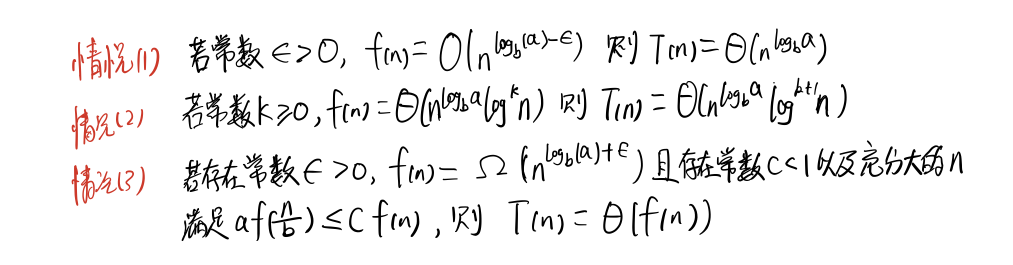 情况(1) 若常数 ϵ>0, f(n)=O(n^{log_b(a)-ϵ}) 则 T(n)=Θ(n^{log_b a})
情况(2) 若常数k≥0, f(n)=Θ(n^{log_b a} log^k n) 则 T(n)=Θ(n^{log_b a} log^{k+1} n)
情况(3) 若存在常数 ϵ>0, f(n)=Ω(n^{log_b(a)+ϵ}) 且存在常数C<1以及充分大的n
满足 af(n/b)≤Cf(n), 则 T(n)=Θ(f(n))